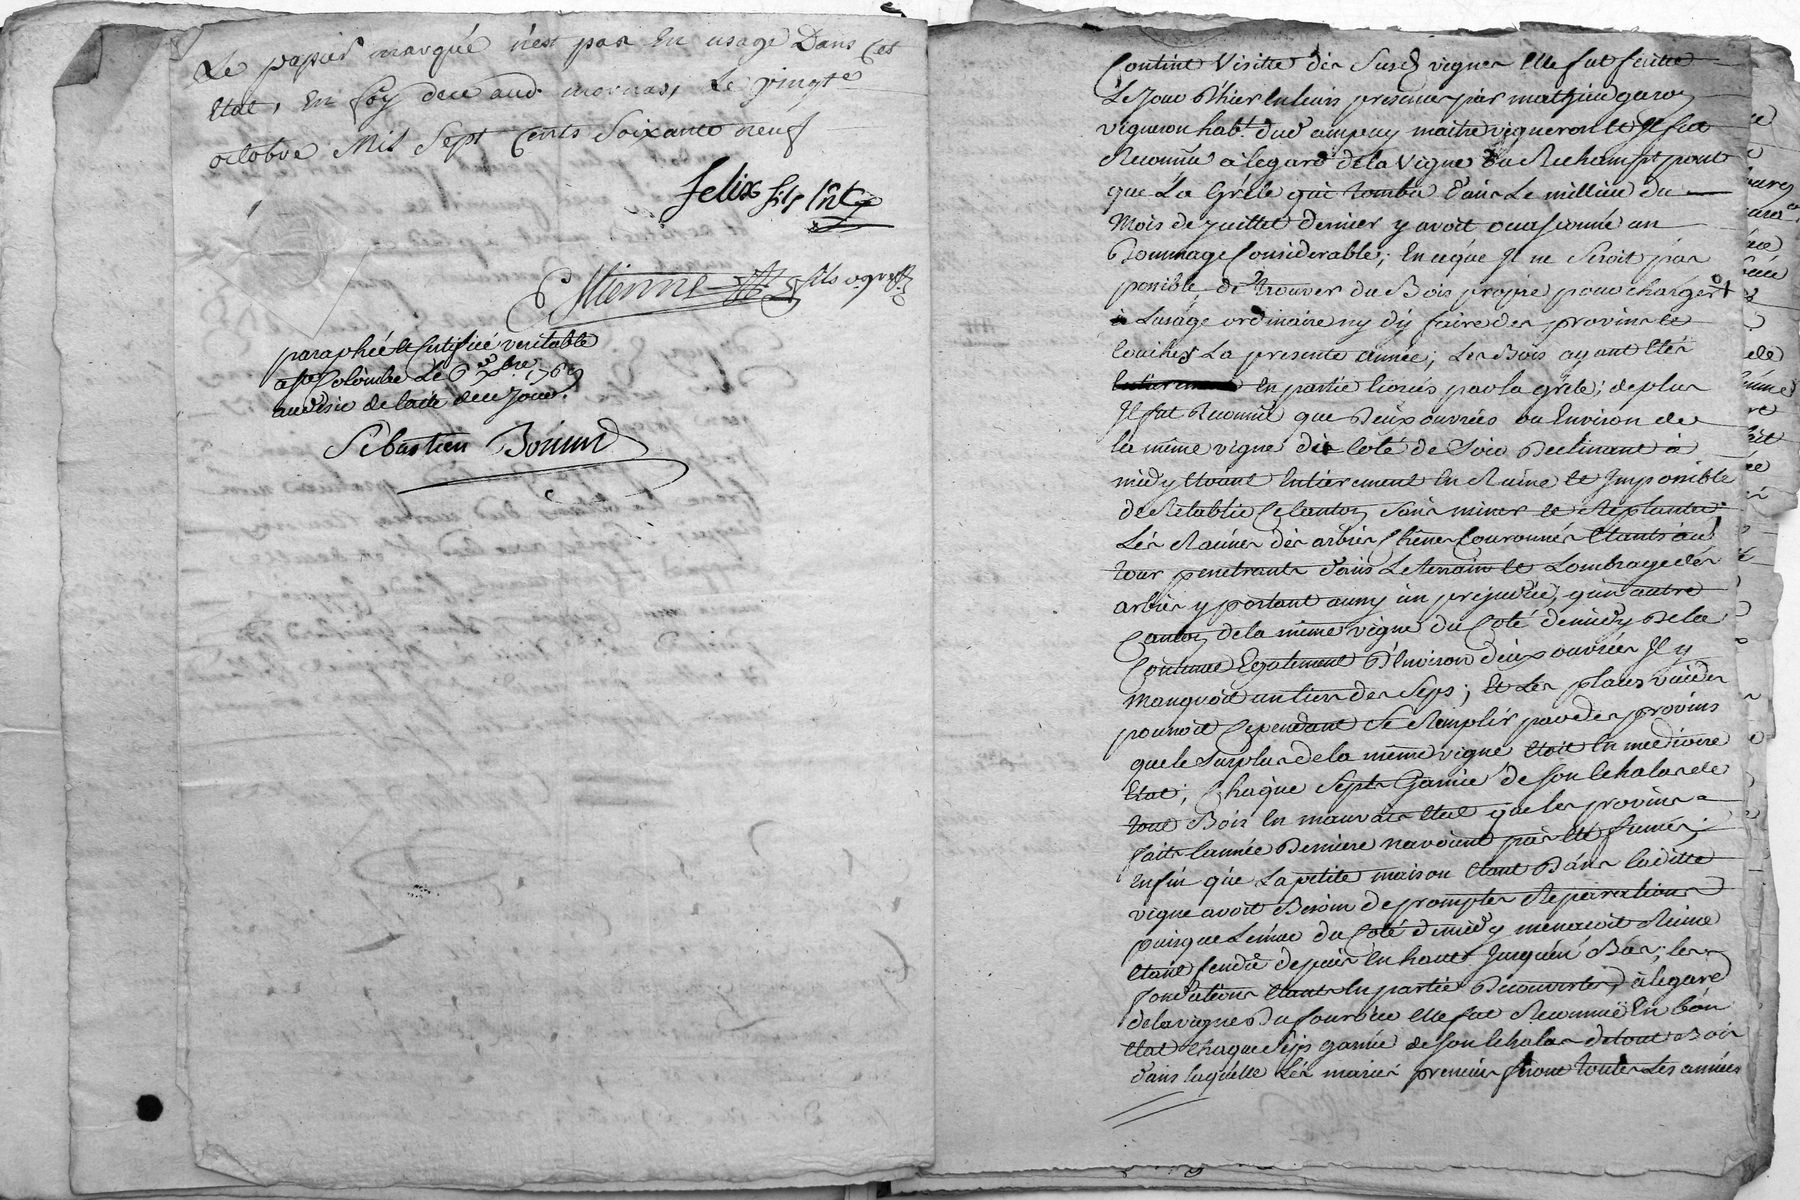 Le papier marqué n'est pas En usage Dans cet
Etat, En foy dece aud. mornas, Le vingte
octobre Mil Sept Cents Soixante neuf
felix fils
Etienne fils
paraphée et Certifiée veritable
a ste Colombe Le 6 xbre 1769
au desir de lacte dece Jour.
Sebastien
Contint Visitte des Susd. vignes Elle fut faitte
Le Jour D'hier En leurs presences par mathieu
vigneron habt. dud. ampuy maitre vigneron et Il fut
Reconnu a legard de la Vigne du Recham
que La Grele qui tomba dans Le millieu du
Mois de Juillet dernier y avoit occasionné un
Dommage Considerable; En ceque Il ne Seroit pas
possible de trouver du Bois propre pour charger
a Lusage ordinaire ny d'y faire des provins et
couches La presente année; Les Bois ayant Etés
En partie par la grele; deplus
Il fut Reconnu que Deux ouvrées ou Environ de
la même vigne du Coté de Soir Declinant a
midy Etoient Entierement En Ruine et Impossible
de Retablir Ce Canton Sans miner et Replanter
Les Racines des arbres Chênes Couronnés Etants au
tour penetrants dans Le terrain et Lombrage des
arbres y portant aussy un prejudice, qu'un autre
Canton de la même vigne du Coté de midy De la
Contenue Egalement D'Environ deux ouvrées Il y
Manquoit un tiers des Seps; Et Les places vuides
pouvoit Cependant Se Remplir par des provins
que le Surplus de la même vigne Etoit En mediocre
Etat; Chaque Seps Garnie de Son Echalas de
tout Bois En mauvais Etat que les provins
faits Lannée Derniere navoient pas Eté fumés;
Enfin que La petite maison Etant Dans laditte
vigne avoit Besoin de promptes Reparations
puisque Le mur du Coté de midy menacoit Ruine
Etant fendu depuis En haut Jusqu'en Bas; les
fondations Etants En partie Decouvertes, a legard
de la vigne Du fournier Elle fut Reconnüe En bon
Etat Chaque Seps garnie de Son Echalas de tout Bois
dans laquelle Les mariés premiers feront toutes Les années